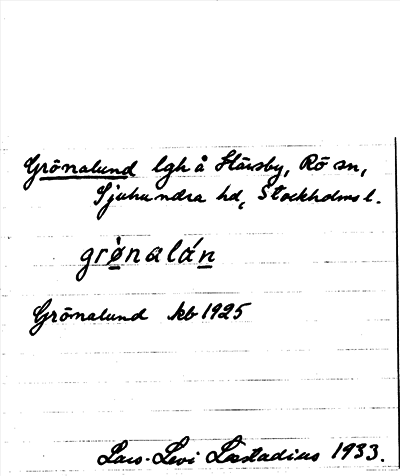 Grönalund lgh å Härsby, Rö sn,
Sjuhundra hd, Stockholms l.
grö̀nalán
Grönalund kb 1925
Lars-Levi Læstadius 1933.